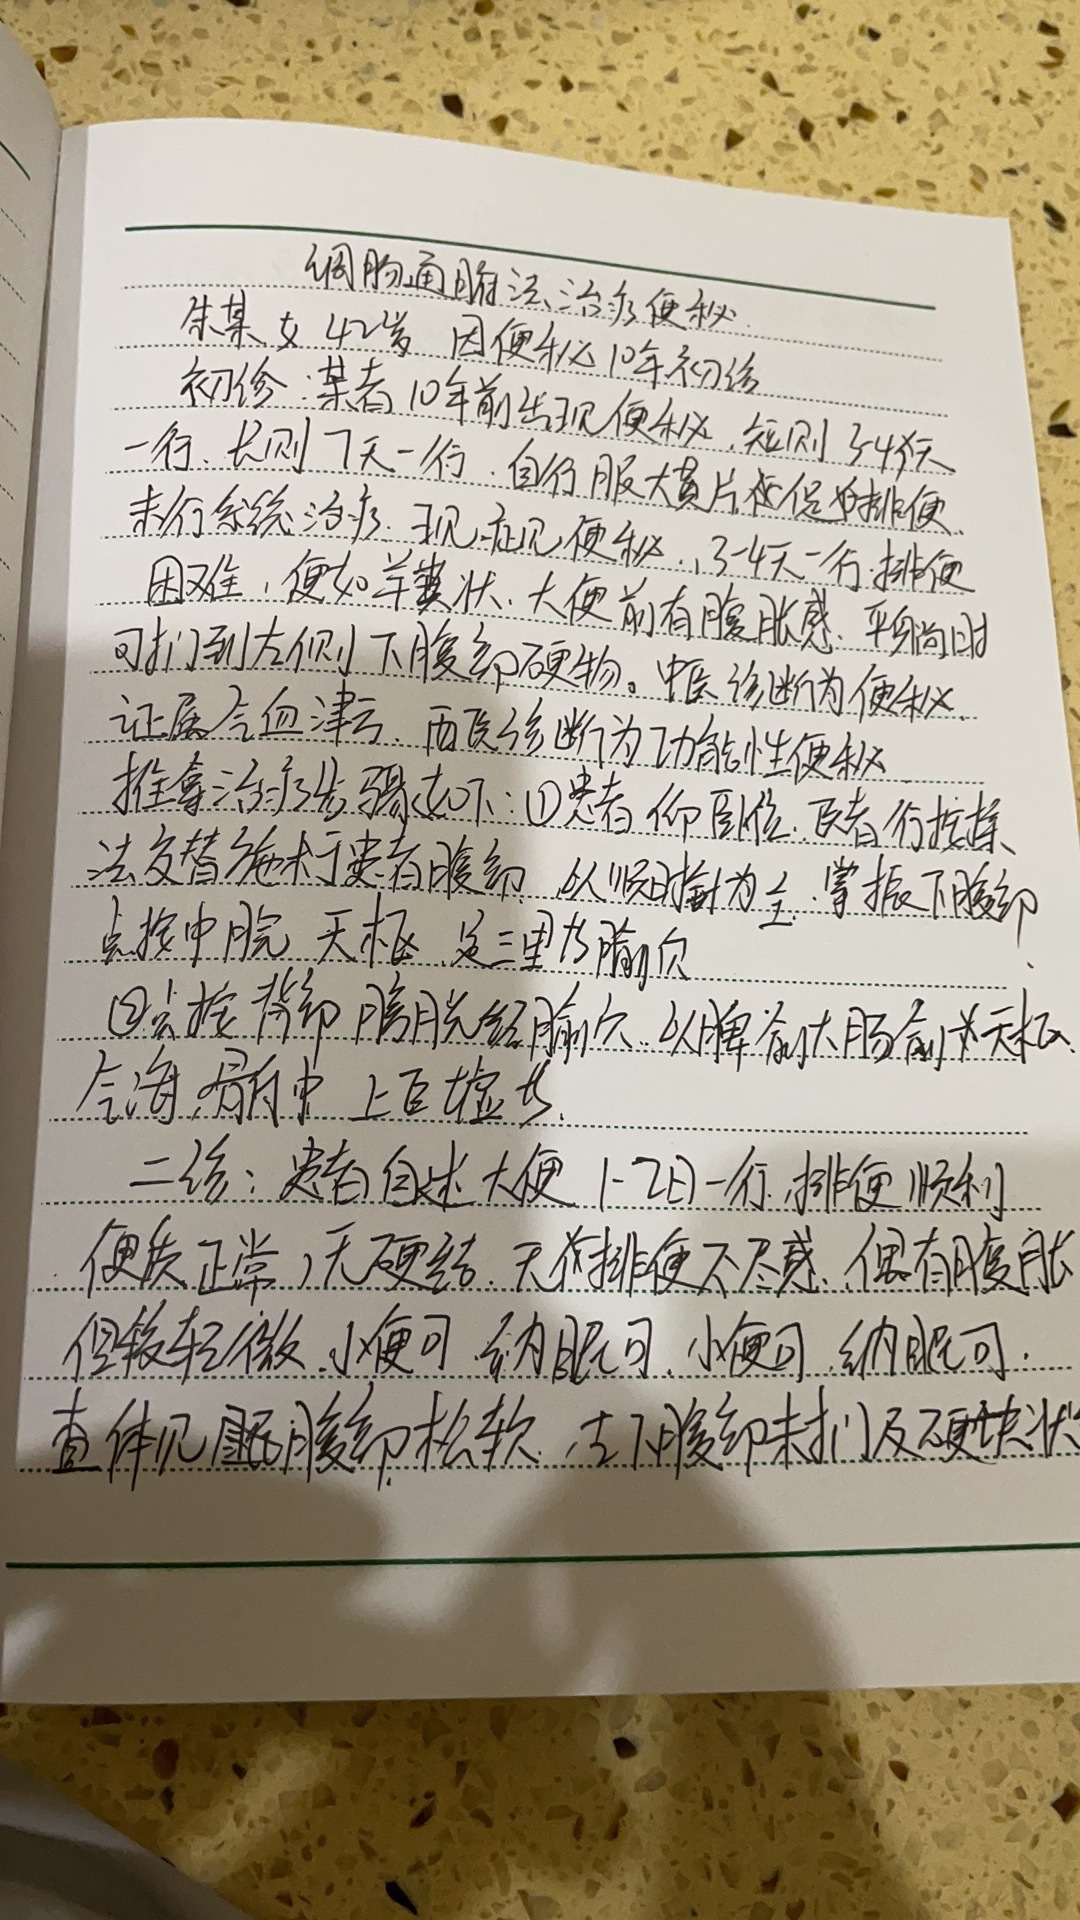 调肠通腑法治疗便秘
朱某 女 42岁 因便秘10年初诊
初诊:某者10年前出现便秘,短则3-4天
一行、长则7天一行.自行服大黄片促排便.
未行系统治疗.现症见便秘,3-4天一行.排便
困难,便如羊粪状.大便前有腹胀感、平躺时
可扪到左侧下腹部硬物。中医诊断为便秘.
证属气血津亏.西医诊断为功能性便秘
推拿治疗步骤如下:①患者仰卧位.医者行按揉
法交替施术于患者腹部,以顺时针为主.掌振下腹部
点按中脘 天枢 足三里等腧穴
②点按背部膀胱经腧穴.以脾俞大肠俞 天枢、
气海 上巨虚等.
二诊:患者自述大便1-2日一行,排便顺利
便质正常,无硬结.无排便不尽感、偶有腹胀
但较轻微.小便可.纳眠可.小便可.纳眠可.
查体见腹部松软.左下腹部未扪及硬块状